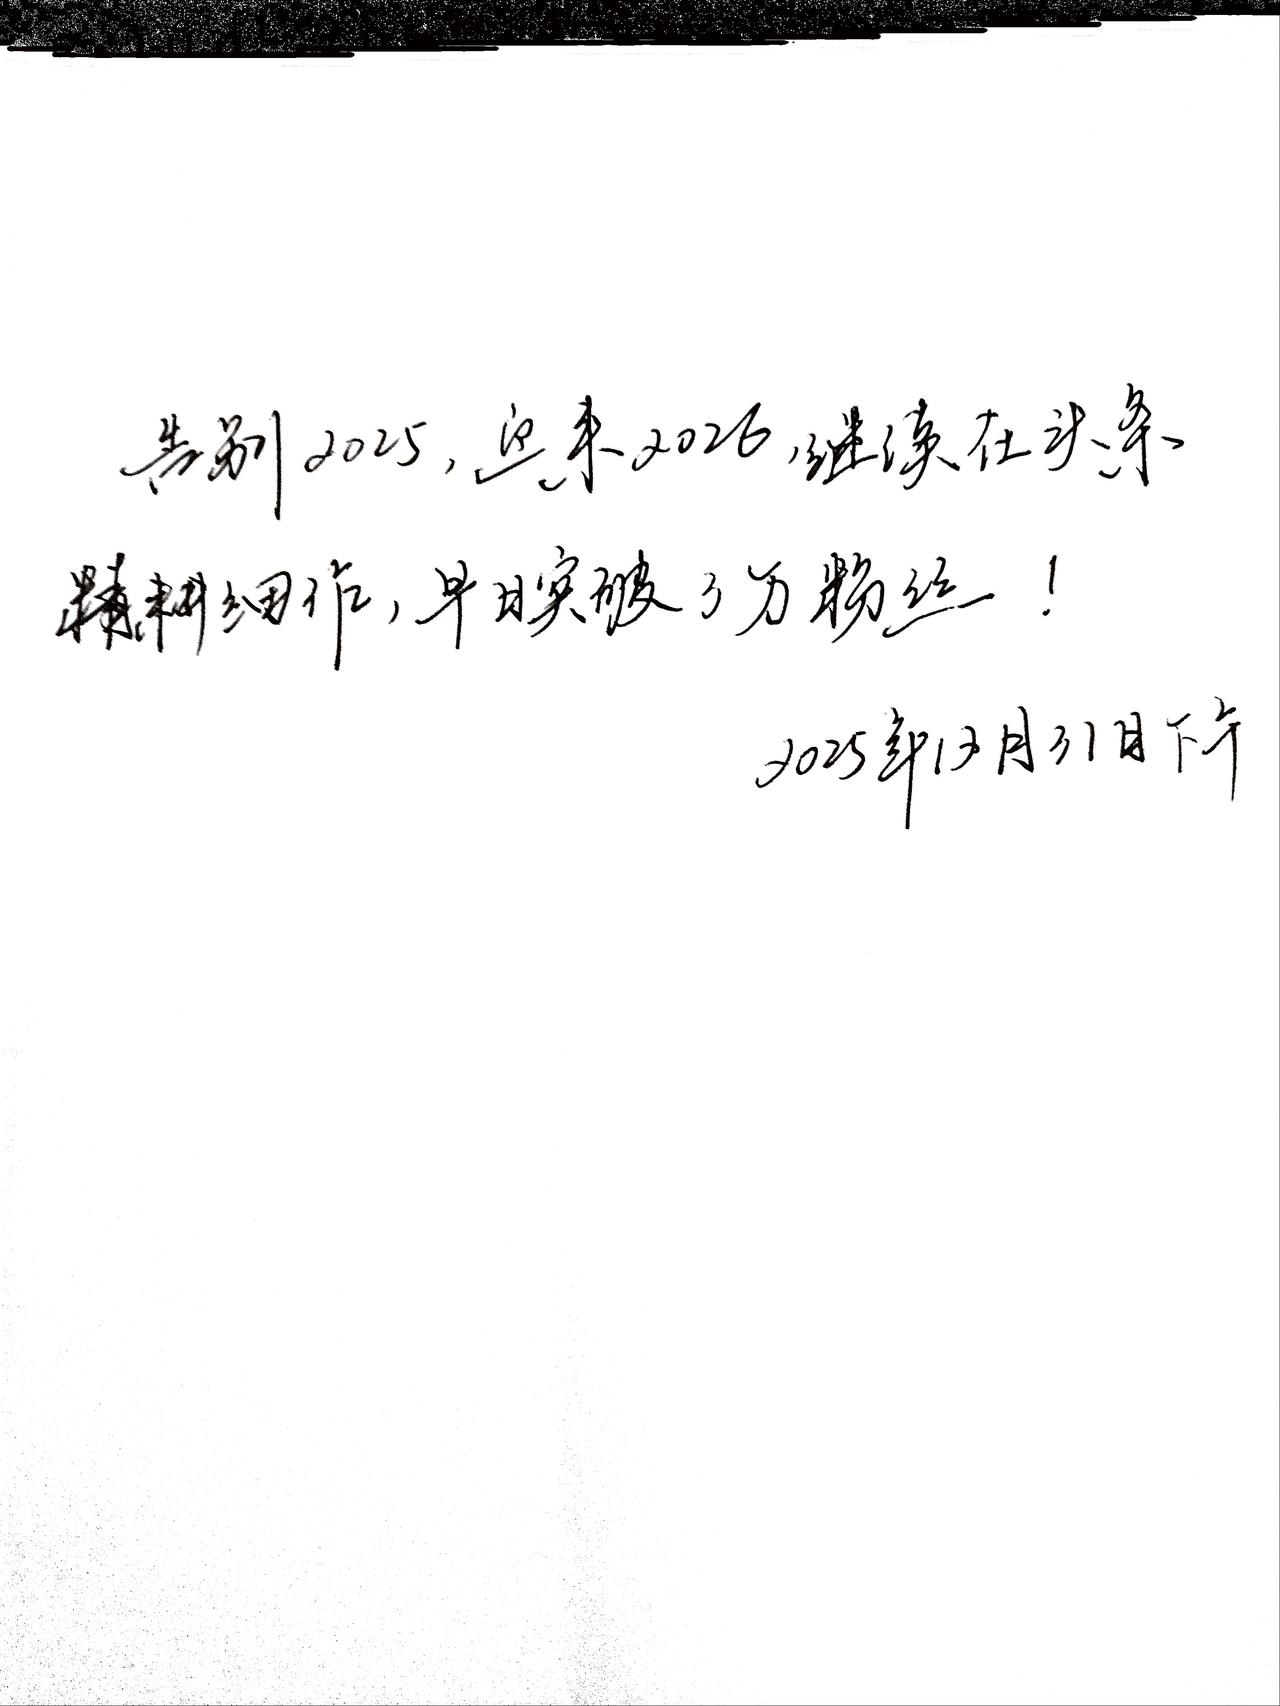 告别2025,迎来2026,继续在头条
精耕细作,早日突破3万粉丝!
2025年12月31日下午